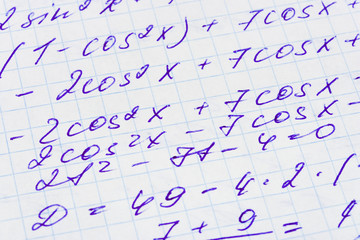 2 sin²x + 7cosx +
(1 - cos²x) + 7cosx +
- 2cos²x + 7cosx +
- 2cos²x + 7cosx -
2cos²x - 7cosx -
2t² - 7t - 4 = 0
D = 49 - 4·2·(
7 + 9 =